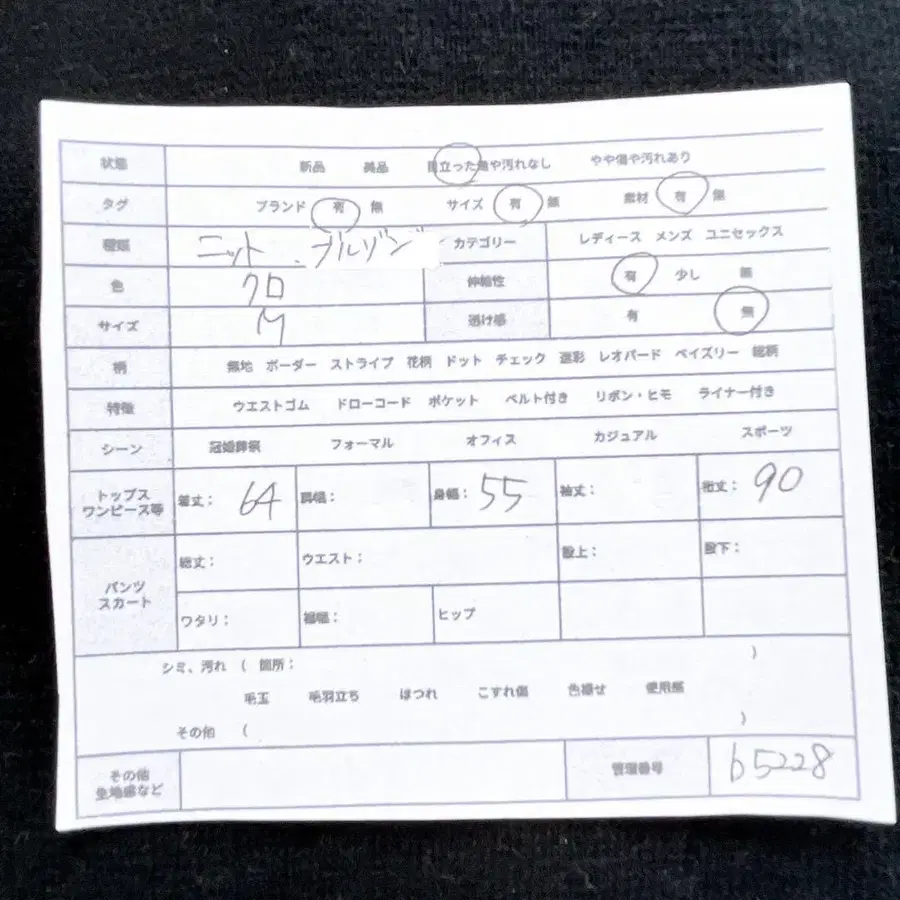 状態 新品 美品 目立った傷や汚れなし やや傷や汚れあり
タグ ブランド 有 無 サイズ 有 無 素材 有 無
種類 ニット、ブルゾン カテゴリー レディース メンズ ユニセックス
色 クロ 伸縮性 有 少し 無
サイズ M 透け感 有 無
柄 無地 ボーダー ストライプ 花柄 ドット チェック 迷彩 レオパード ペイズリー 総柄
特徴 ウエストゴム ドローコード ポケット ベルト付き リボン・ヒモ ライナー付き
シーン 冠婚葬祭 フォーマル オフィス カジュアル スポーツ
トップス
ワンピース等 着丈: 64 肩幅: 身幅: 55 袖丈: 裄丈: 90
パンツ
スカート 総丈: ウエスト: 股上: 股下:
ワタリ: 裾幅: ヒップ
シミ、汚れ ( 箇所: )
毛玉 毛羽立ち ほつれ こすれ傷 色褪せ 使用感
その他 ( )
その他
生地感など 管理番号 b5228